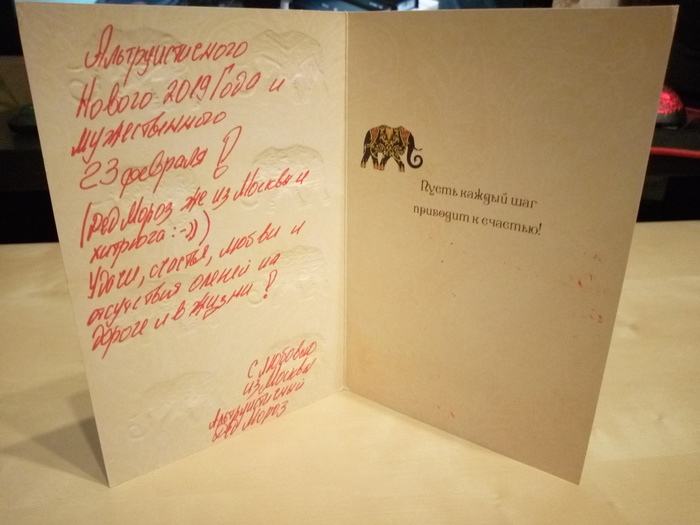 Альтруистисного
Нового 2019 Года и
мужественного
23 февраля!
(Дед Мороз же из Москвы и
хитрюга :-)))
Удачи, счастья, любви и
отсутствия оленей на
дороге и в жизни!
С любовью
из Москвы
Альтруистичный
Дед Мороз
Пусть каждый шаг
приводит к счастью!